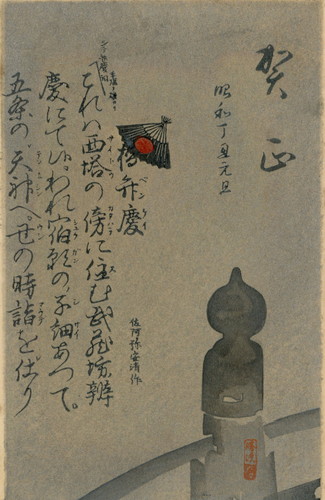 賀正
昭和丁丑元旦
橋弁慶
ベンケイ
佐阿弥安清作
これは西塔の傍に住む武蔵坊辨
慶にて候。われ宿願の子細あつて。
五条の天神へ。丑の時詣を仕り